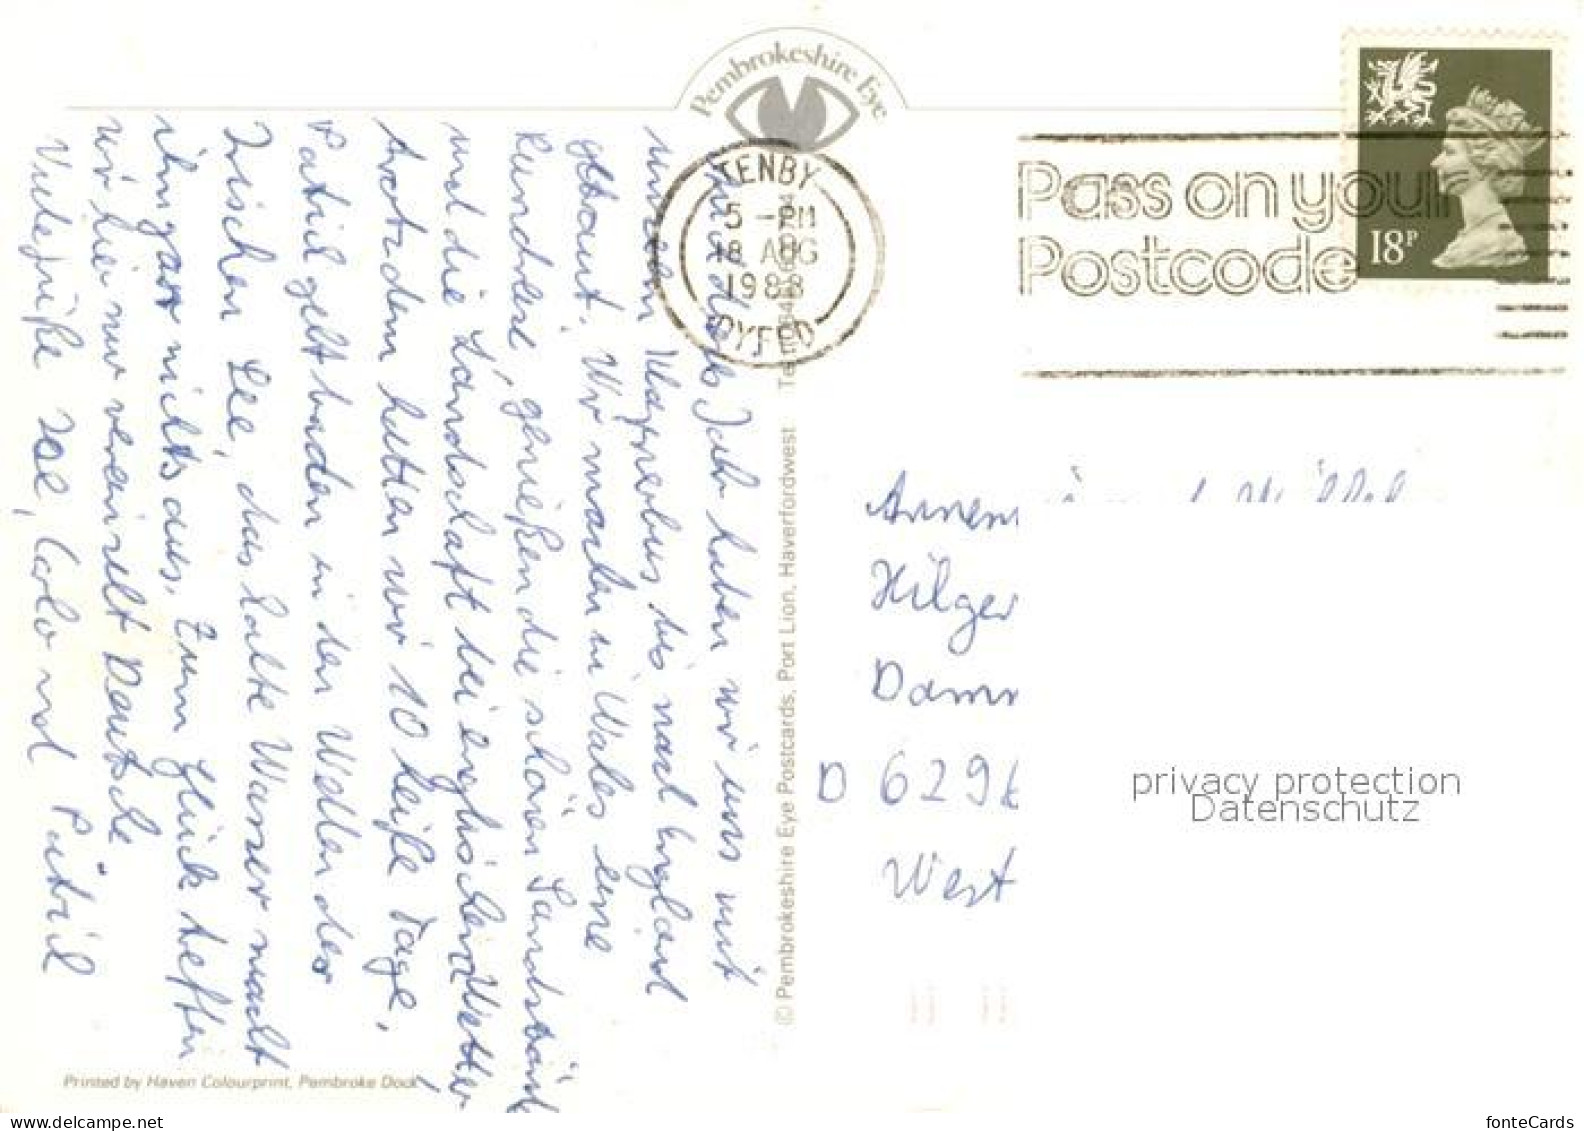 Pembrokeshire Eye
TENBY
5 - PM
18 AUG
1988
DYFED
Pass on your
Postcode
18P
Jahr haben wir uns mit
unserem bis nach England
getraut. Wir machen in Wales eine
Rundreise, genießen die schönen Sandstränd
und die Landschaft bei englischem Wetter.
Trotzdem hatten wir 10 heiße Tage,
Patril geht baden in den Wellen der
Irischen See, das kalte Wasser macht
ihm gar nichts aus. Zum Glück treffen
wir hier nur vereinzelt Deutsche.
Viele Grüße Zoé, Colo und Patril
© Pembrokeshire Eye Postcards, Port Lion, Haverfordwest
Printed by Haven Colourprint, Pembroke Dock
Hilger
D 6296
West
privacy protection
Datenschutz
www.delcampe.net
fonteCards